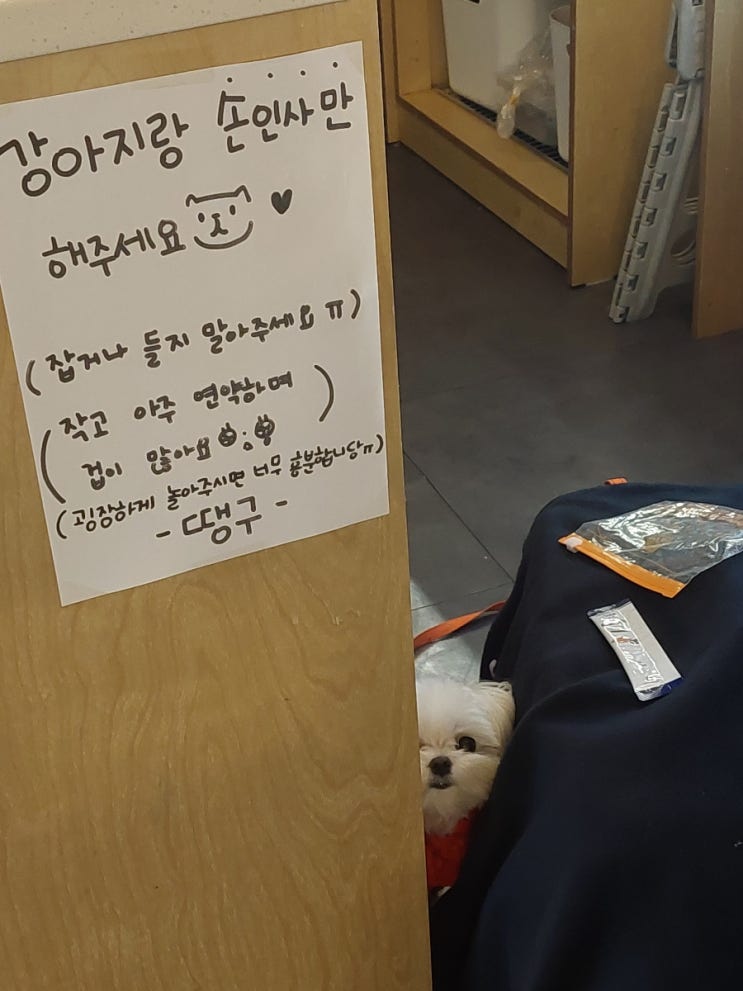 강아지랑 손인사만
해주세요 ♥
(잡거나 들지 말아주세요 ㅠ)
(작고 아주 연약하며
겁이 많아요 ; )
(굉장하게 놀아주시면 너무 흥분합니당ㅠ)
- 땡구 -